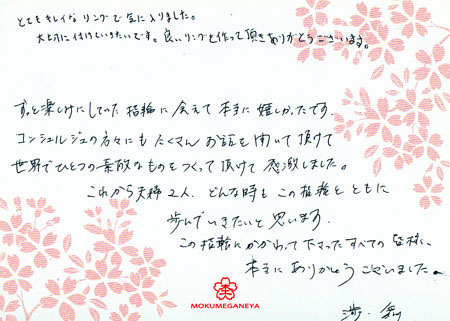 とてもキレイなリングで気に入りました。
大切に付けていきたいです。良いリングを作って頂きありがとうございます。
ずっと楽しみにしていた指輪に会えて本当に嬉しかったです。
コンシェルジュの方々にもたくさんお話を聞いて頂けて
世界でひとつの素敵なものをつくって頂けて感激しました。
これから夫婦2人、どんな時もこの指輪とともに
歩んでいきたいと思います。
この指輪にかかわって下さったすべての皆様、
本当にありがとうございました。
MOKUMEGANEYA